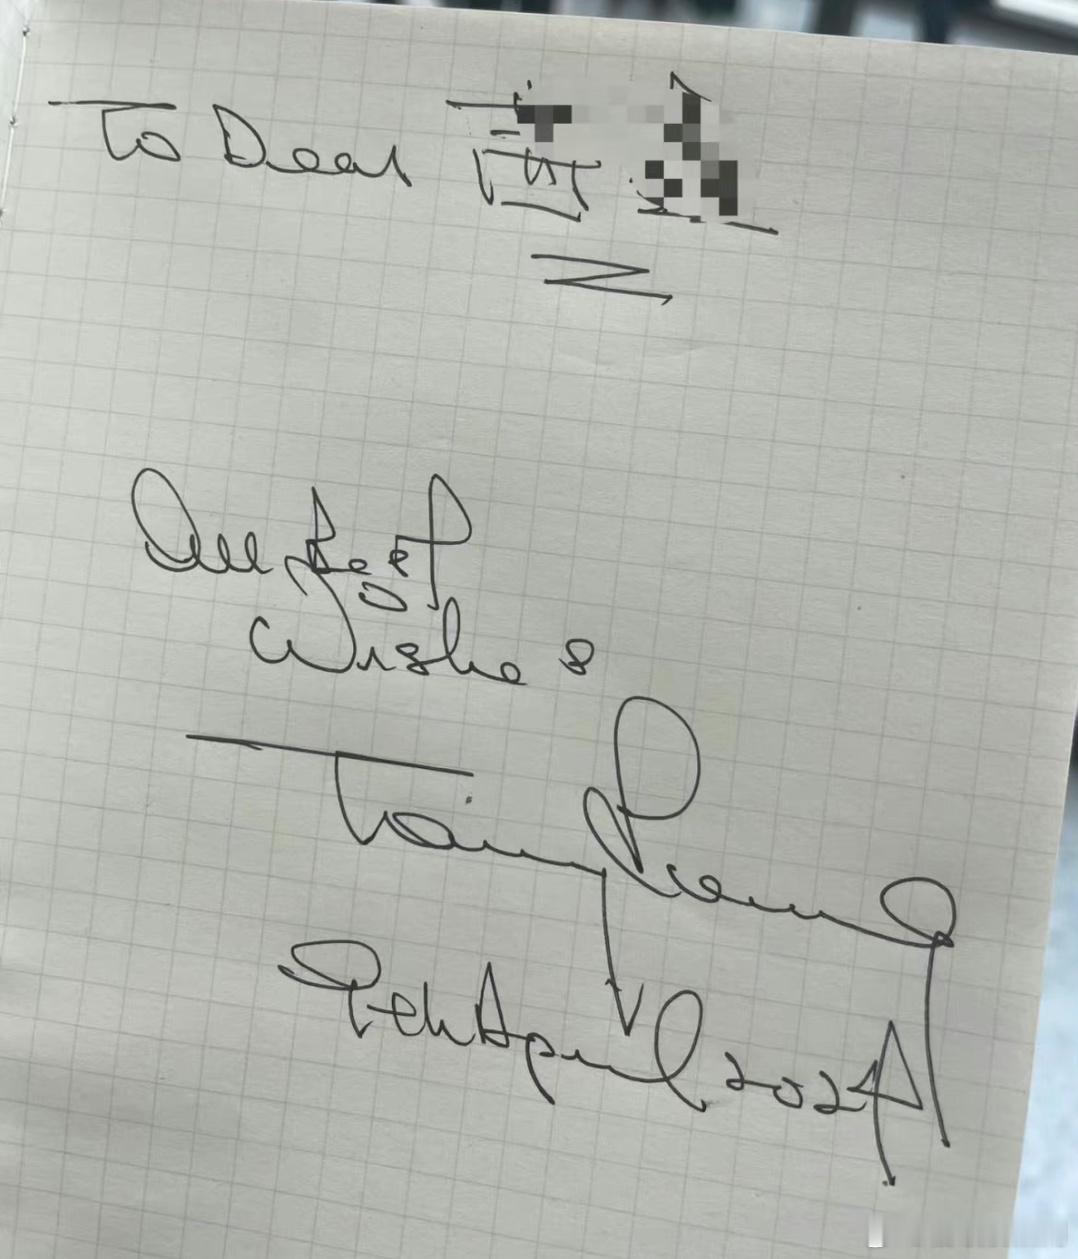 To Dear
All Best
Wishes
Tony Leung
9th April 2024